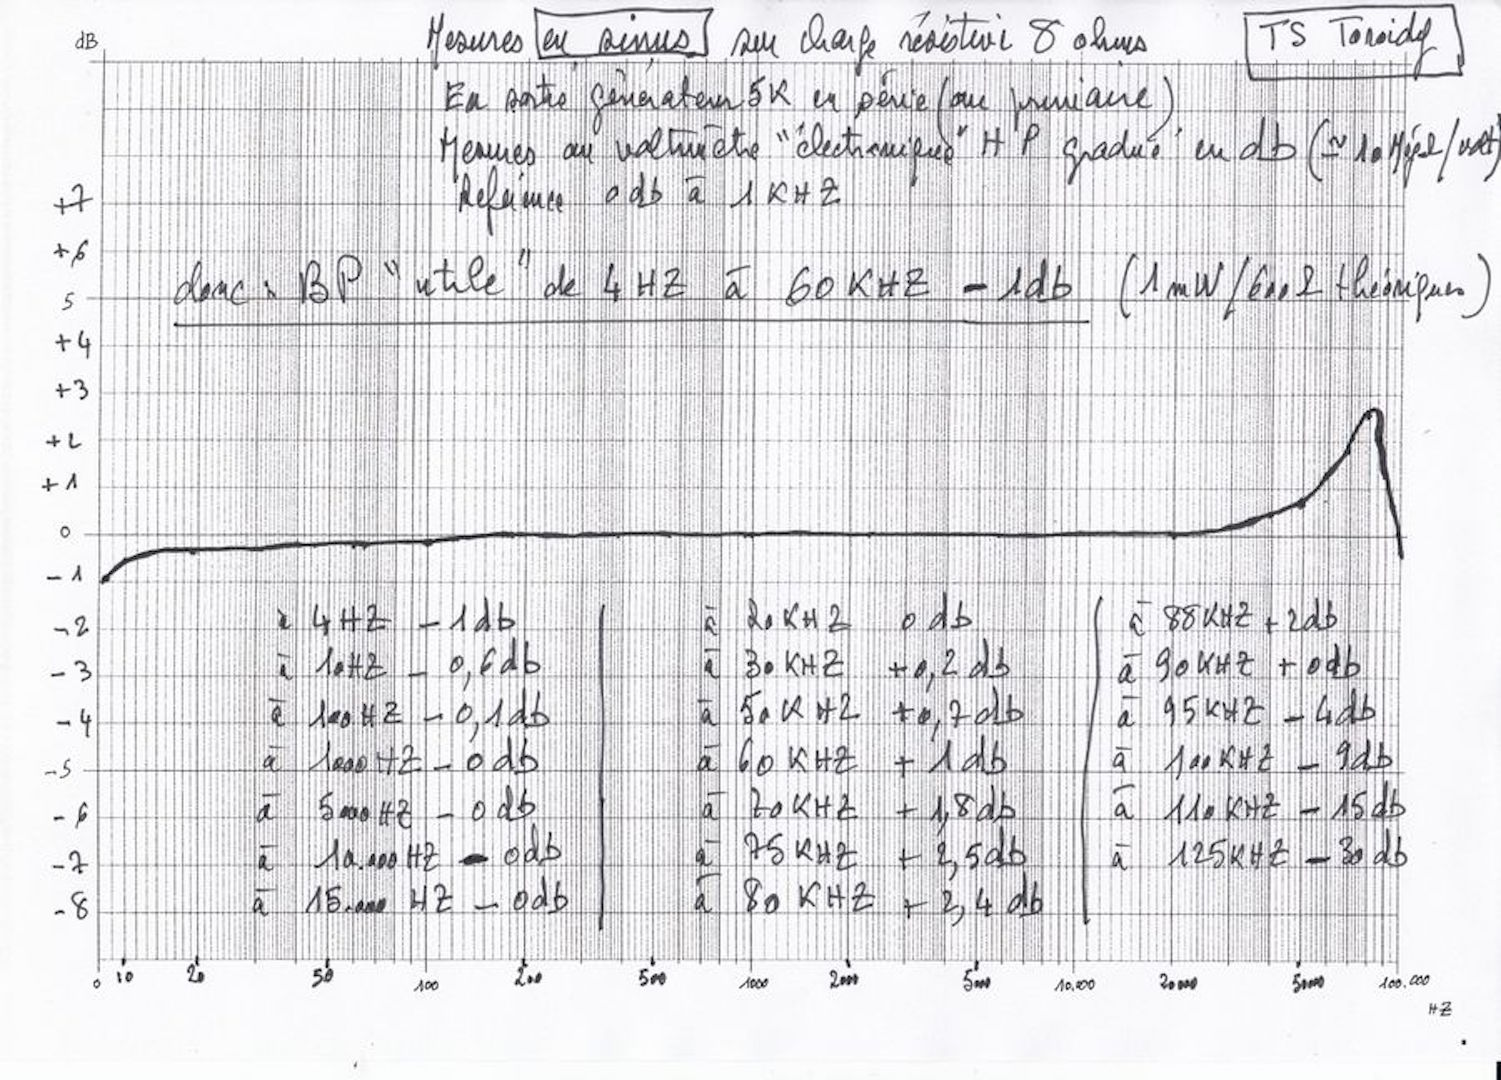 dB
Mesures en sinus sur charge résistive 8 ohms
TS Toroidy
En sortie générateur 5K en série (au primaire)
Mesures au voltmètre "électronique" HP gradué en db (≃ 10 MégΩ/volt)
Référence 0 db à 1 KHZ
+7
+6
donc : BP "utile" de 4 HZ à 60 KHZ - 1db (1 mW/600Ω théoriques)
5
+4
+3
+2
+1
0
-1
-2
-3
-4
-5
-6
-7
-8
à 4 HZ - 1 db
à 10HZ - 0,6 db
à 100 HZ - 0,1db
à 1000 HZ - 0 db
à 5000 HZ - 0 db
à 10.000 HZ - 0db
à 15.000 HZ - 0db
à 20 KHZ 0 db
à 30 KHZ +0,2 db
à 50 KHZ +0,7 db
à 60 KHZ + 1 db
à 70 KHZ + 1,8 db
à 75 KHZ + 2,5 db
à 80 KHZ + 2,4 db
à 88 KHZ + 2db
à 90 KHZ + 0db
à 95 KHZ - 4db
à 100 KHZ - 9db
à 110 KHZ - 15 db
à 125 KHZ - 30 db
0 10 20 50 100 200 500 1000 2000 5000 10.000 20000 50000 100.000
HZ